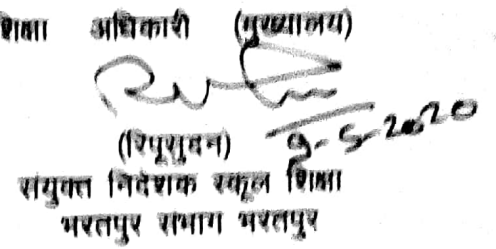 शिक्षा अधिकारी (मुख्यालय)
9-5-2020
(रिपूसुदन)
संयुक्त निदेशक स्कूल शिक्षा
भरतपुर संभाग भरतपुर